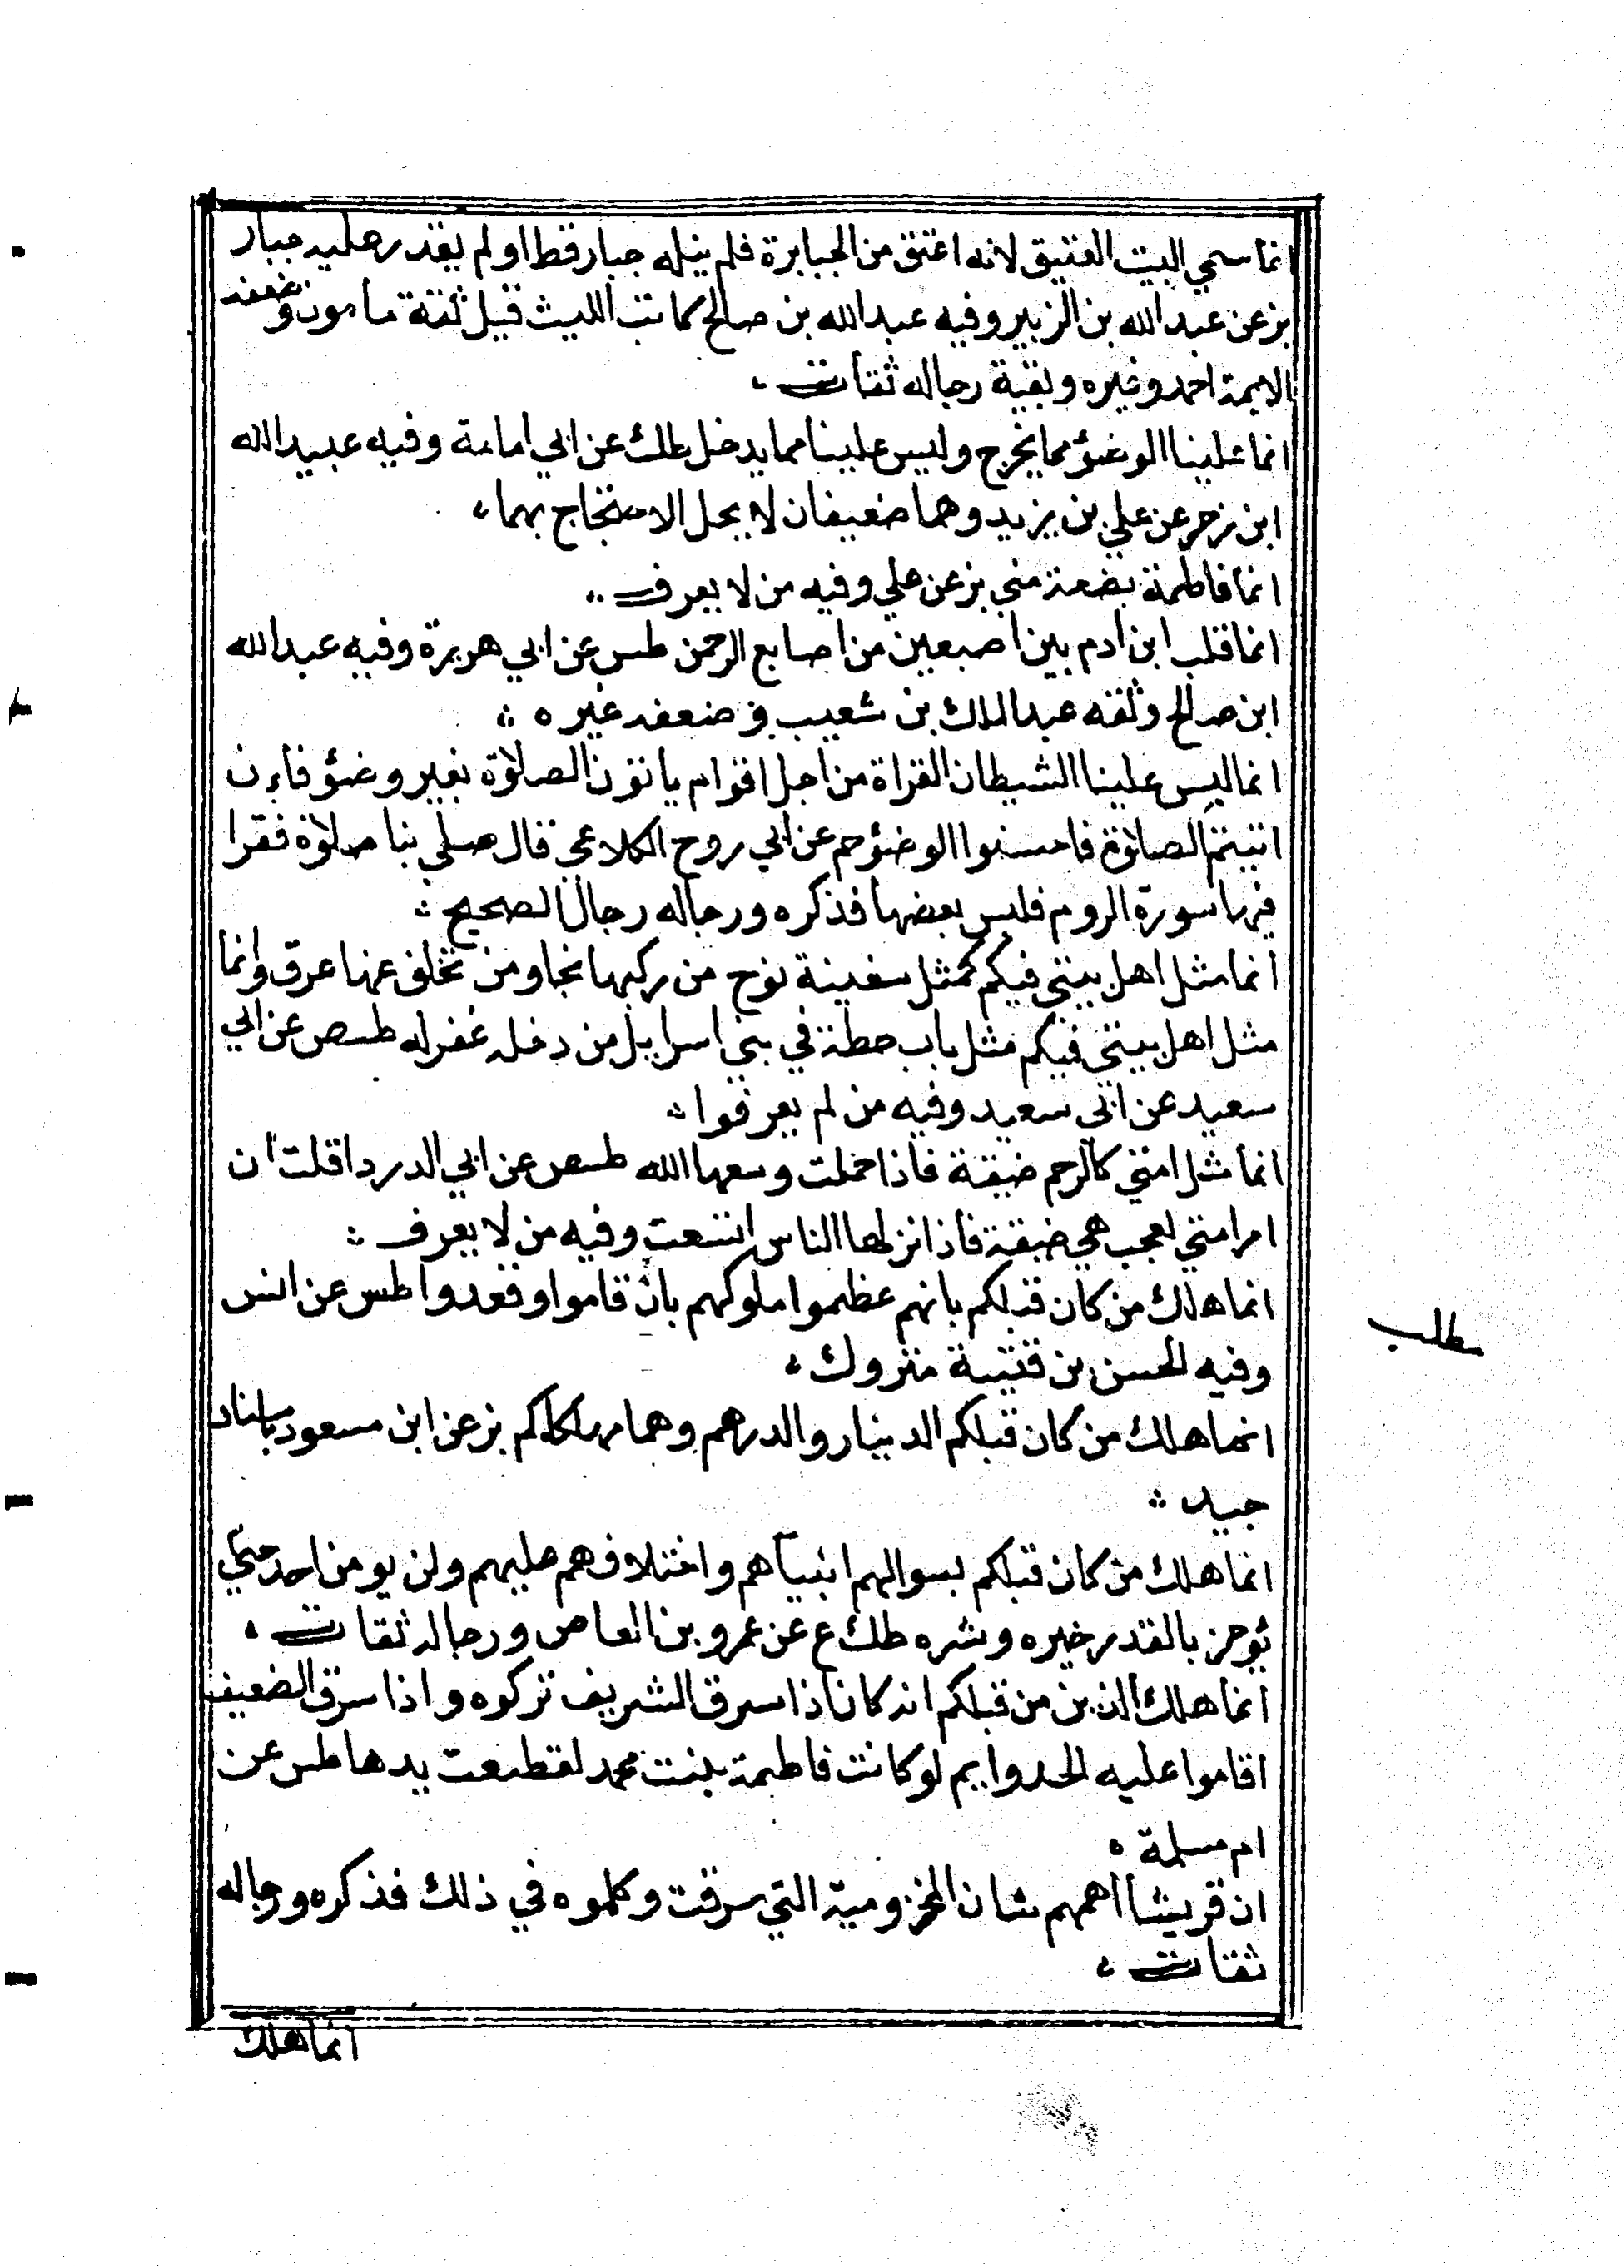 انما سمي البيت العتيق لانه اعتق من الجبابرة فلم ينله جبار قط او لم يقدر عليه جبار
بز عن عبد الله بن الزبير وفيه عبد الله بن صالح كاتب الليث قيل ثقة مامون وضعفه
الايمة احمد وغيره وبقية رجاله ثقات
انما علينا الوضؤ مما يخرج وليس علينا مما يدخل طك عن ابي امامة وفيه عبيد الله
ابن زحر عن علي بن يزيد وهما ضعيفان لا يحل الاحتجاج بهما
انما فاطمة بضعة مني بز عن علي وفيه من لا يعرف
انما قلب ابن ادم بين اصبعين من اصابع الرحمن طس عن ابي هريرة وفيه عبد الله
ابن صالح وثقه عبد الملك بن شعيب وضعفه غيره
انما لبس علينا الشيطان القراة من اجل اقوام ياتون الصلاة بغير وضؤ فاذا
اتيتم الصلاة فاحسنوا الوضؤ حم عن ابي روح الكلاعي قال صلي بنا صلاة فقرا
فيها سورة الروم فلبس بعضها فذكره ورجاله رجال الصحيح
انما مثل اهل بيتي فيكم كمثل سفينة نوح من ركبها نجا ومن تخلف عنها غرق وانما
مثل اهل بيتي فيكم مثل باب حطة في بني اسرايل من دخله غفر له طسص عن ابي
سعيد عن ابي سعيد وفيه من لم يعرفوا
انما مثل امتي كالرحم ضيقة فاذا حملت وسعها الله طسص عن ابي الدرداء قلت ان
امر امتي لعجب هي ضيقة فاذا نزلها الناس اتسعت وفيه من لا يعرف
انما هلك من كان قبلكم بانهم عظموا ملوكهم بان قاموا وقعدوا طس عن انس
مطلب
وفيه الحسن بن قتيبة متروك
انما هلك من كان قبلكم الدينار والدرهم وهما مهلكاكم بز عن ابن مسعود باسناد
جيد
انما هلك من كان قبلكم بسوالهم انبياهم واختلافهم عليهم ولن يومن احد حتي
يومن بالقدر خيره وشره طك ع عن عمرو بن العاص ورجاله ثقات
انما هلك الذين من قبلكم انه كان اذا سرق الشريف تركوه واذا سرق الضعيف
اقاموا عليه الحد وايم لو كانت فاطمة بنت محمد لقطعت يدها طس عن
ام سلمة
ان قريشا اهمهم شان المخزومية التي سرقت وكلموه في ذلك فذكره ورجاله
ثقات
انما هلك